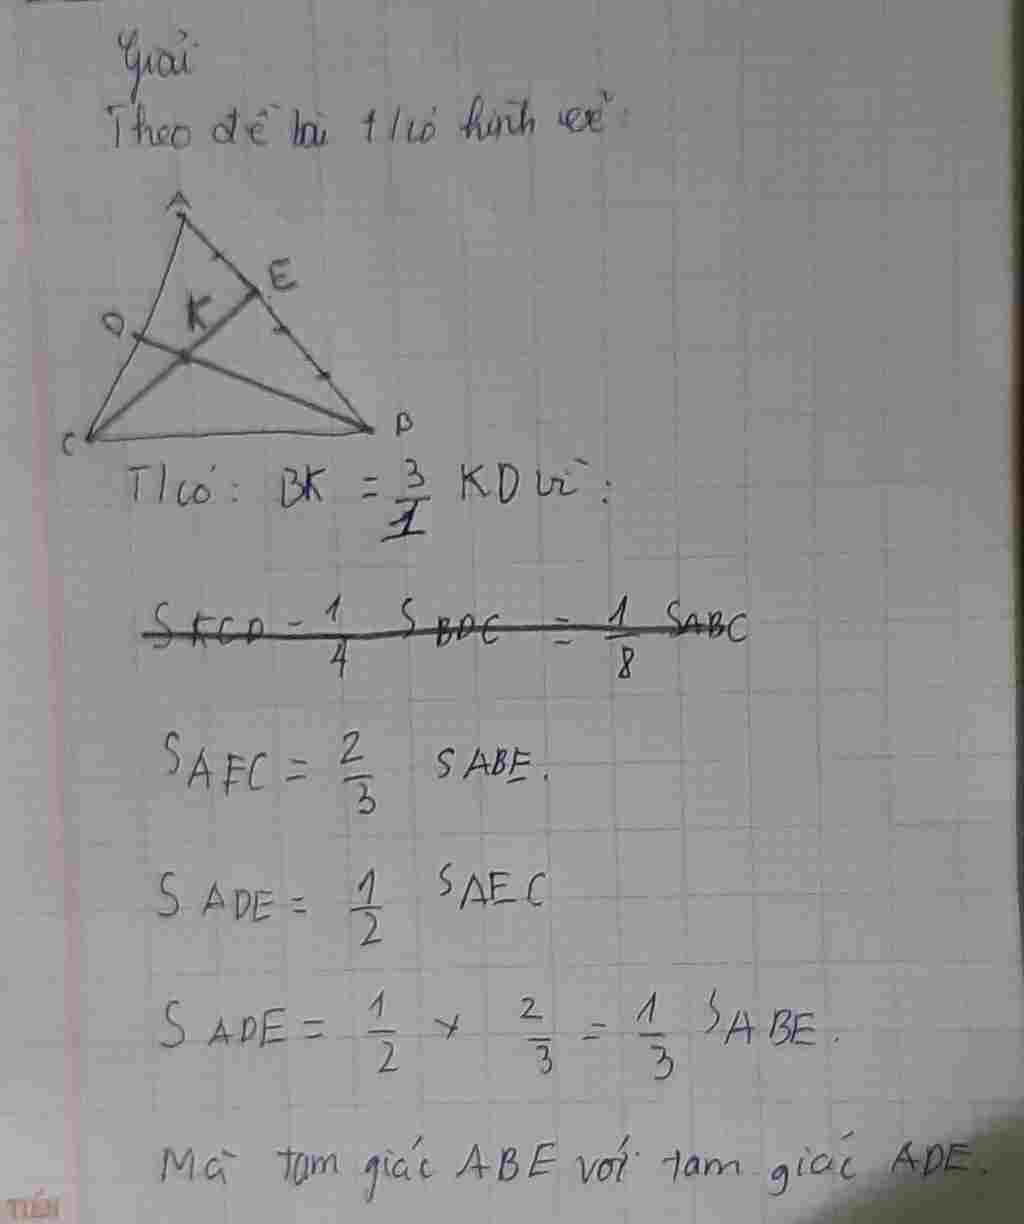 Giải
Theo đề bài t/có hình vẽ:
A
E
K
D
C
B
T/có: BK = 3/1 KD vì:
SKCD = 1/4 SBDC = 1/8 SABC
SAEC = 2/3 SABE.
SADE = 1/2 SAEC
SADE = 1/2 x 2/3 = 1/3 SABE.
Mà tam giác ABE với tam giác ADE.
TIẾN